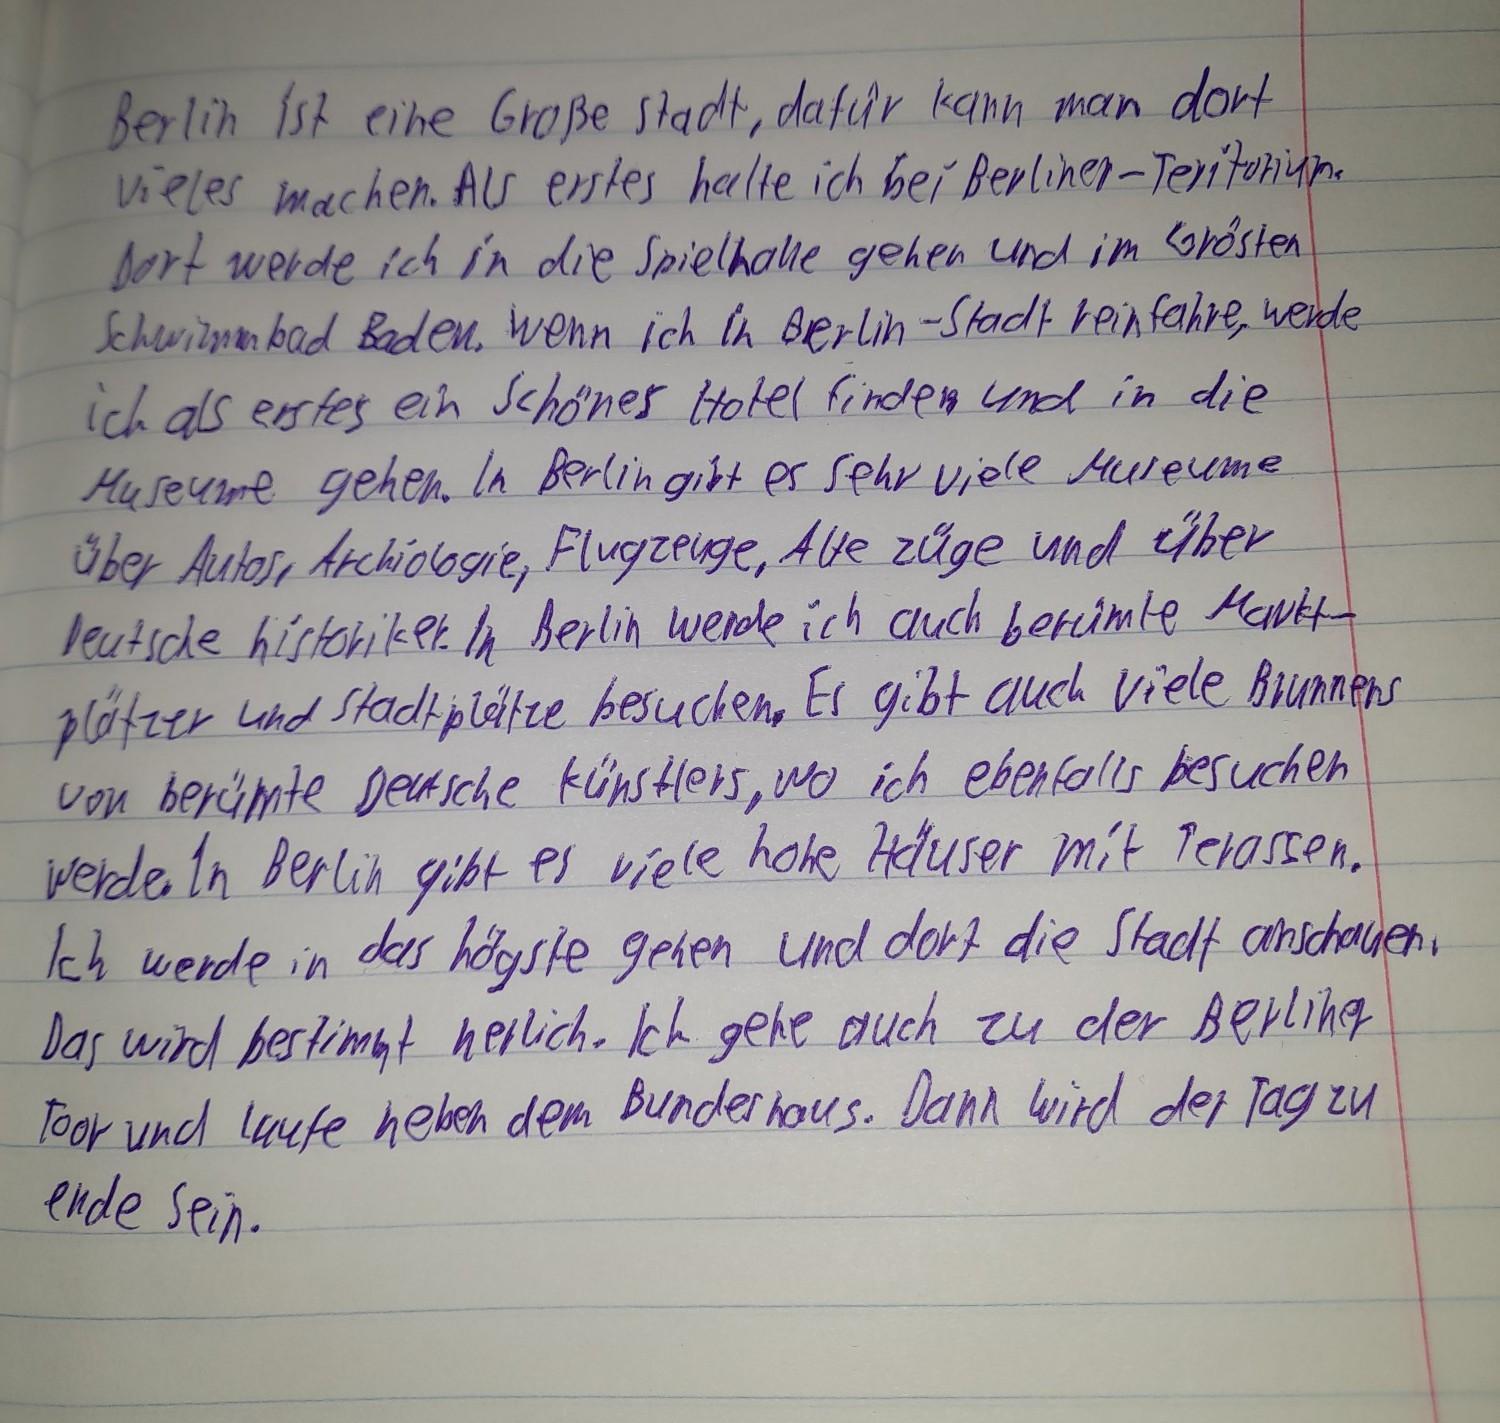 Berlin ist eine Große Stadt, dafür kann man dort
vieles machen. Als erstes halte ich bei Berliner-Teritorium.
Dort werde ich in die Spielhalle gehen und im Grösten
Schwimmbad Baden. Wenn ich in Berlin-Stadt reinfahre, werde
ich als erstes ein Schönes Hotel finden und in die
Museume gehen. In Berlin gibt es sehr viele Museume
über Autos, Archiologie, Flugzeuge, Alte züge und über
Deutsche historiker. In Berlin werde ich auch berümte Markt-
plätzer und Stadtplätze besuchen. Es gibt auch viele Brunnens
von berümte Deutsche Künstlers, wo ich ebenfalls besuchen
werde. In Berlin gibt es viele hohe Häuser mit Terassen.
Ich werde in das högste gehen und dort die Stadt anschauen.
Das wird bestimmt herlich. Ich gehe auch zu der Berliner
Toor und laufe neben dem Bundeshaus. Dann wird der Tag zu
ende sein.